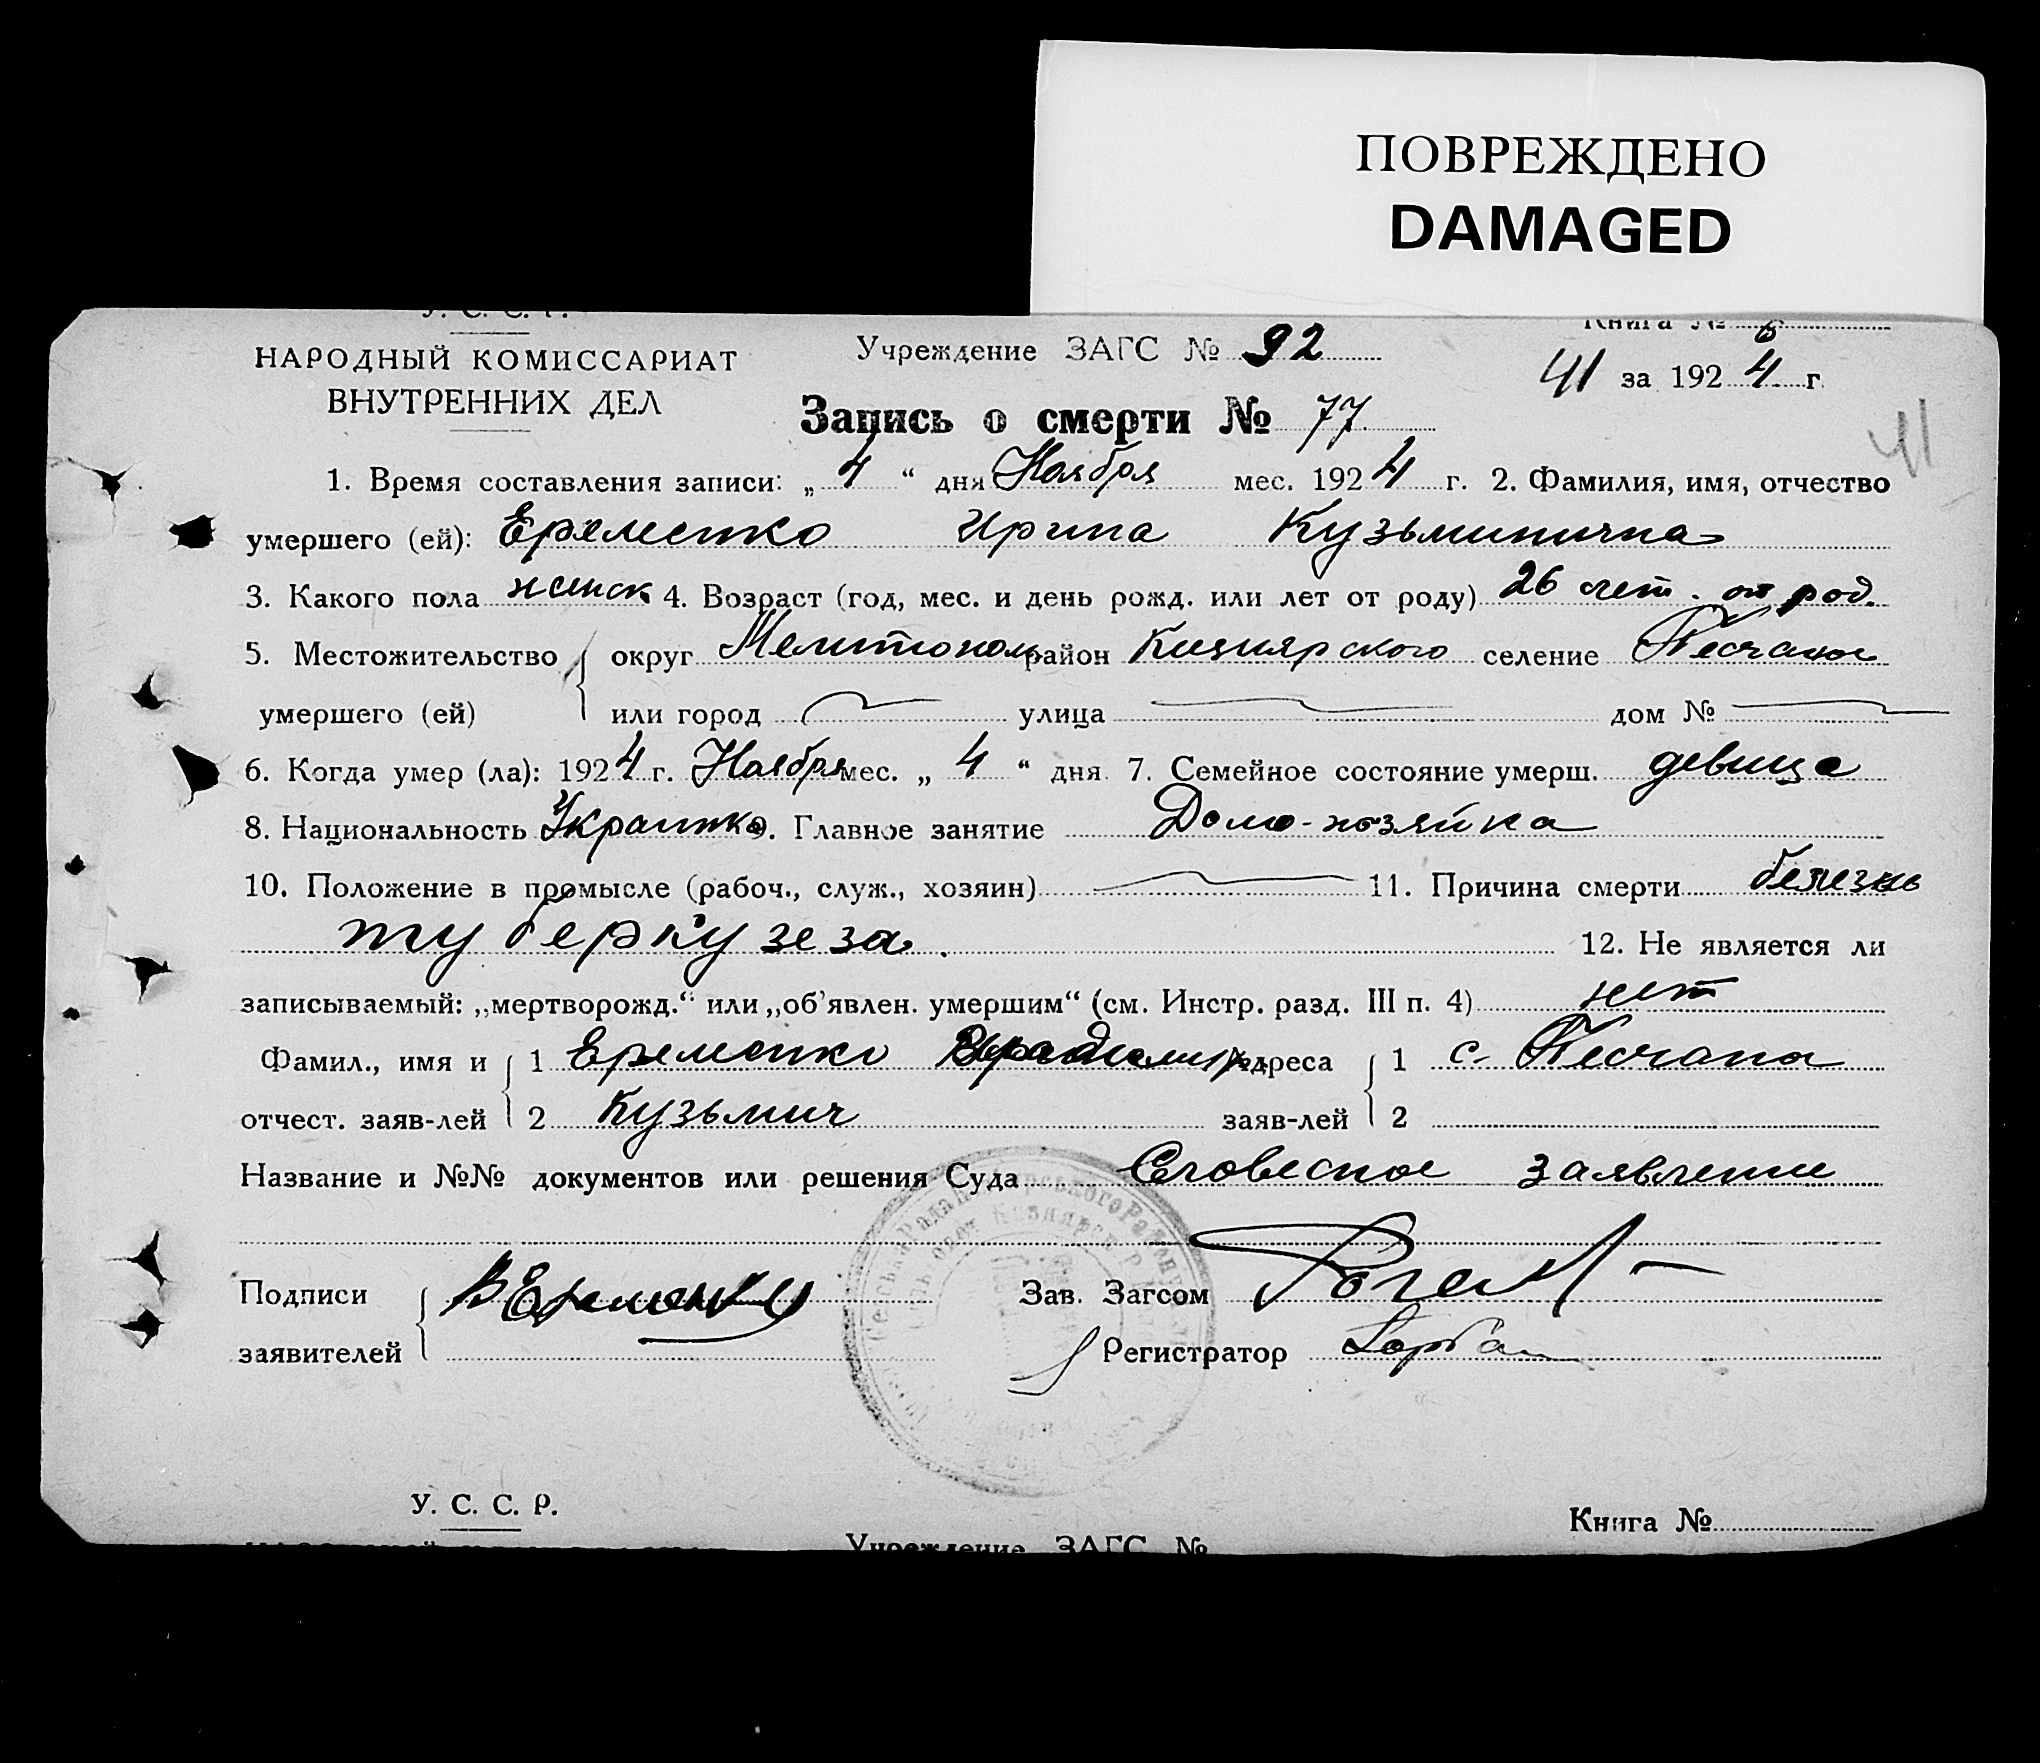 ПОВРЕЖДЕНО
DAMAGED
У. С. С. Р.
НАРОДНЫЙ КОМИССАРИАТ
ВНУТРЕННИХ ДЕЛ
Учреждение ЗАГС № 92
Книга № 6
41 за 1924 г.
41
Запись о смерти № 77
1. Время составления записи: „ 4 “ дня Ноября мес. 1924 г. 2. Фамилия, имя, отчество
умершего (ей): Еременко Ирина Кузьминична
3. Какого пола женск. 4. Возраст (год, мес. и день рожд. или лет от роду) 26 лет. от род.
5. Местожительство округ Мелитополь район Кизиярского селение Песчаное
умершего (ей) или город улица дом №
6. Когда умер (ла): 1924 г. Ноября мес. „ 4 “ дня 7. Семейное состояние умерш. девица
8. Национальность Украинка 9. Главное занятие Домо-хозяйка
10. Положение в промысле (рабоч., служ., хозяин) 11. Причина смерти
туберкузеза.
12. Не является ли
записываемый: „мертворожд.“ или „об’явлен. умершим“ (см. Инстр. разд. III п. 4) нет
Фамил., имя и 1 Еременко Адреса 1 с. Песчана
отчест. заяв-лей 2 Кузьмич заяв-лей 2
Название и №№ документов или решения Суда Словесное заявление
Подписи В Еременко Зав. Загсом
заявителей Регистратор Горбань
У. С. С. Р.
Книга №
Учреждение ЗАГС №